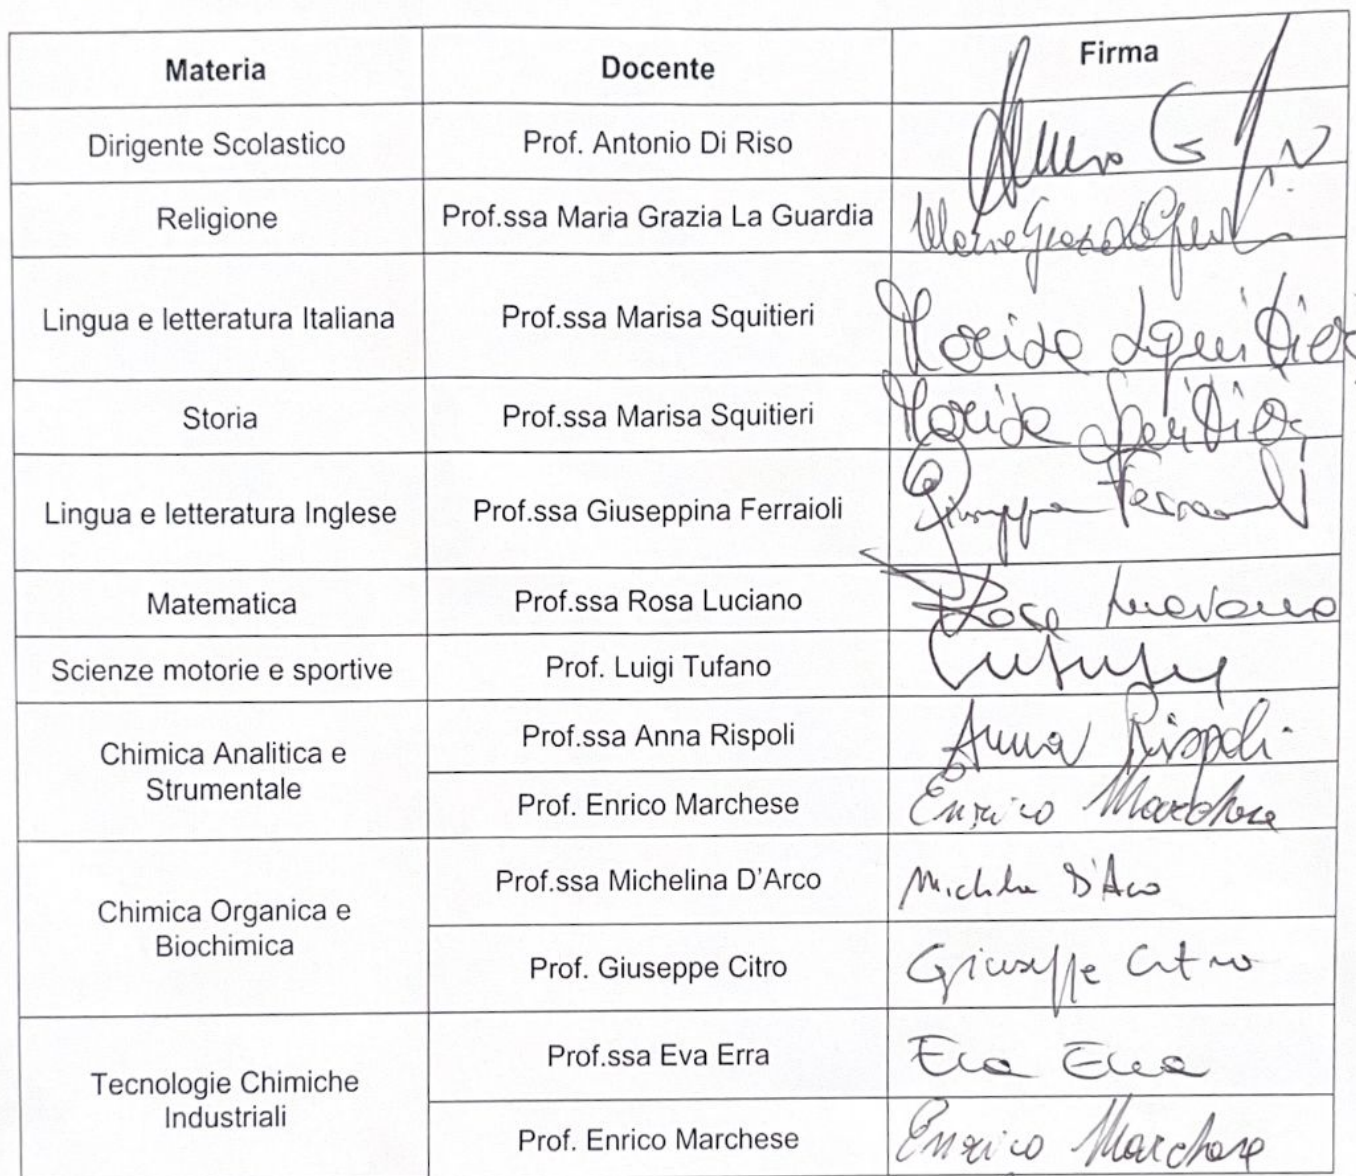 Materia Docente Firma
Dirigente Scolastico Prof. Antonio Di Riso
Religione Prof.ssa Maria Grazia La Guardia
Lingua e letteratura Italiana Prof.ssa Marisa Squitieri Marisa Squitieri
Storia Prof.ssa Marisa Squitieri Marisa Squitieri
Lingua e letteratura Inglese Prof.ssa Giuseppina Ferraioli
Matematica Prof.ssa Rosa Luciano Rosa Luciano
Scienze motorie e sportive Prof. Luigi Tufano
Chimica Analitica e
Strumentale
Prof.ssa Anna Rispoli Anna Rispoli
Prof. Enrico Marchese Enrico Marchese
Chimica Organica e
Biochimica
Prof.ssa Michelina D'Arco D'Arco
Prof. Giuseppe Citro Giuseppe Citro
Tecnologie Chimiche
Industriali
Prof.ssa Eva Erra Eva Erra
Prof. Enrico Marchese Enrico Marchese